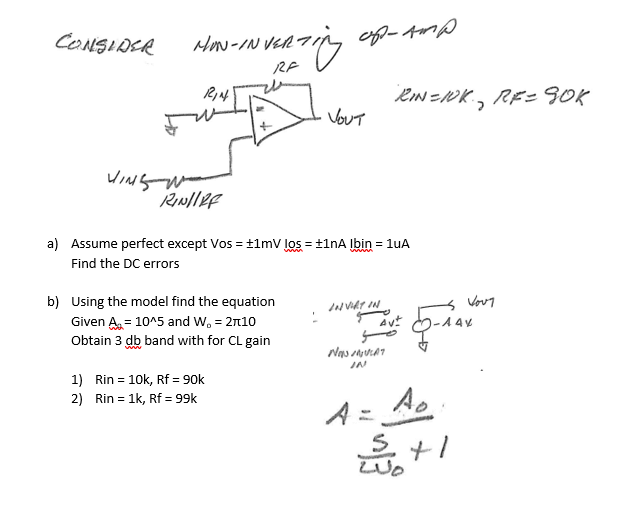 CONSIDER NON-INVERTING OP-AMP
RF
RIN
RIN=10K, RF=90K
VOUT
VINS
RIN//RF
a) Assume perfect except Vos = ±1mV Ios = ±1nA Ibin = 1uA
Find the DC errors
b) Using the model find the equation
Given Ao = 10^5 and Wo = 2π10
Obtain 3 db band with for CL gain
1) Rin = 10k, Rf = 90k
2) Rin = 1k, Rf = 99k
INVERT IN
VOUT
ΔV±
-AΔV
NON INVERT
IN
A = Ao
S + 1
Wo